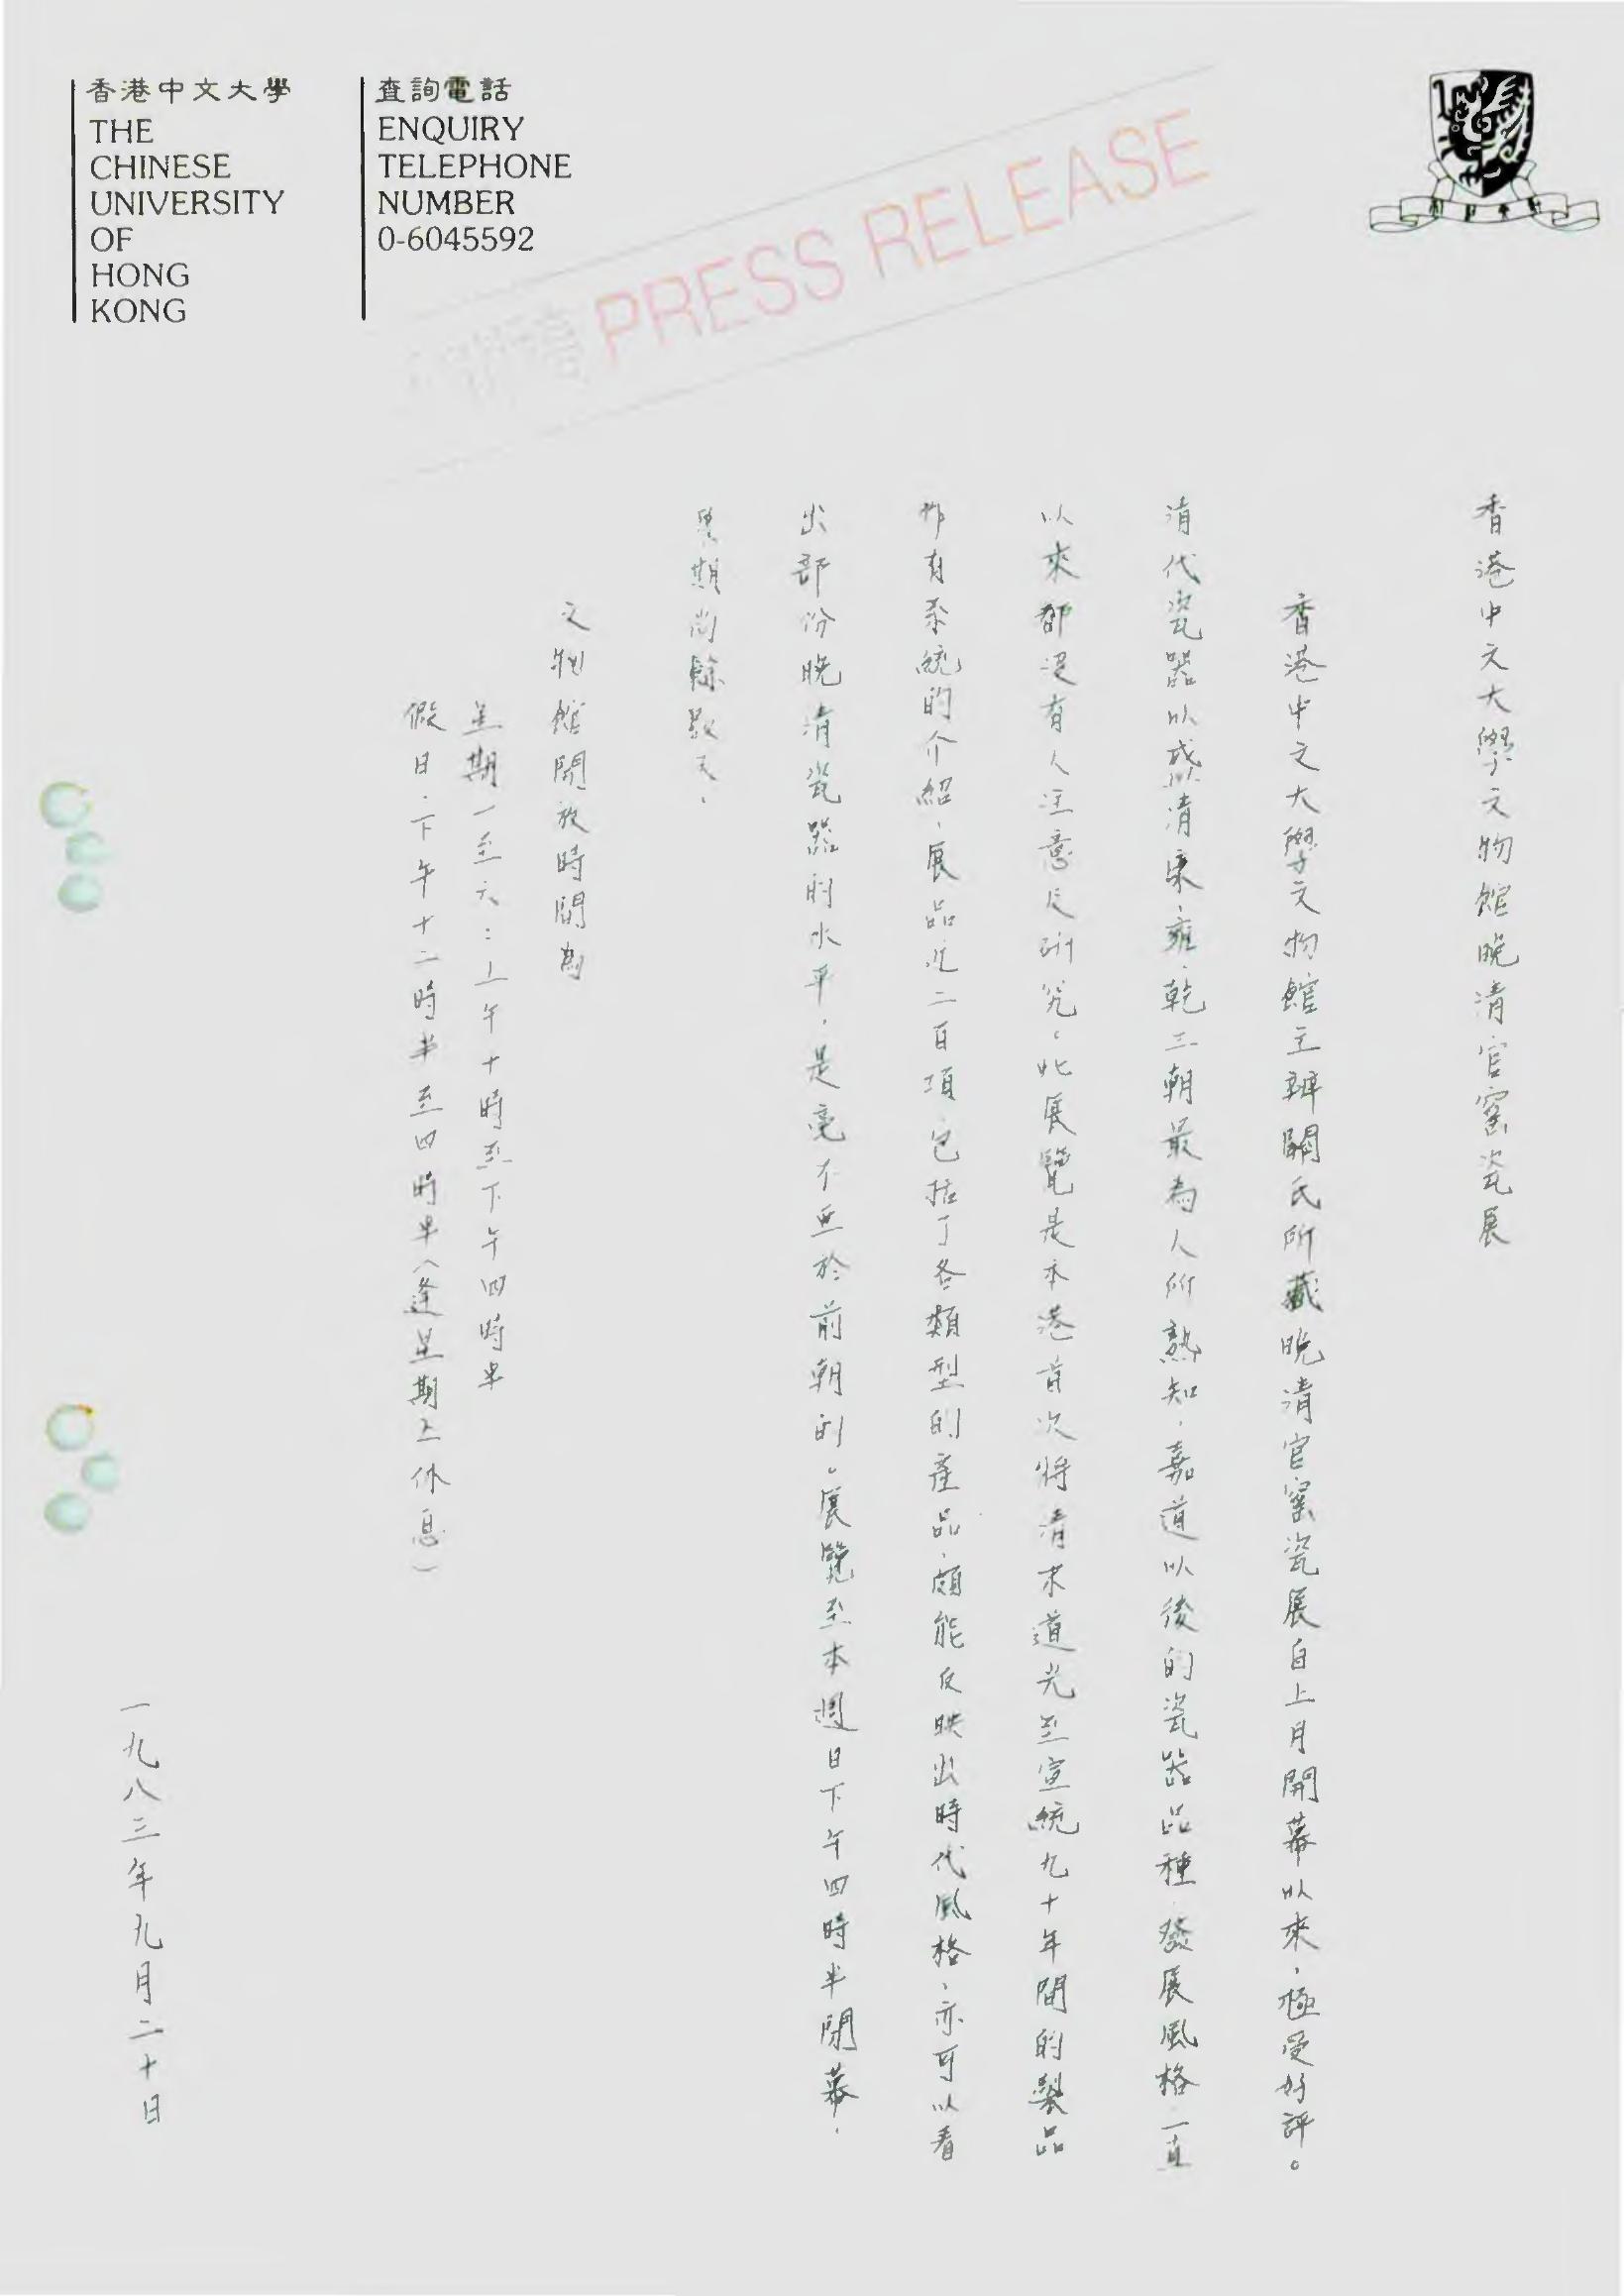 香港中文大學
THE
CHINESE
UNIVERSITY
OF
HONG
KONG
查詢電話
ENQUIRY
TELEPHONE
NUMBER
0-6045592
PRESS RELEASE
香港中文大學文物館晚清官窰瓷展
香港中文大學文物館主辦關氏所藏晚清官窰瓷展自上月開幕以來，極受好評。
清代瓷器以盛清康、雍、乾三朝最為人所熟知，嘉道以後的瓷器品種、發展風格一直
以來都沒有人注意及研究。此展覽是本港首次將清末道光至宣統九十年間的製品
作有系統的介紹，展品近二百項包括了各類型的產品，頗能反映出時代風格，亦可以看
出部份晚清瓷器的水平，是毫不亞於前朝的。展覽至本週日下午四時半閉幕，
展期尚餘數天。
文物館開放時間為
星期一至六：上午十時至下午四時半
假日：下午十二時半至四時半（逢星期二休息）
一九八三年九月二十日